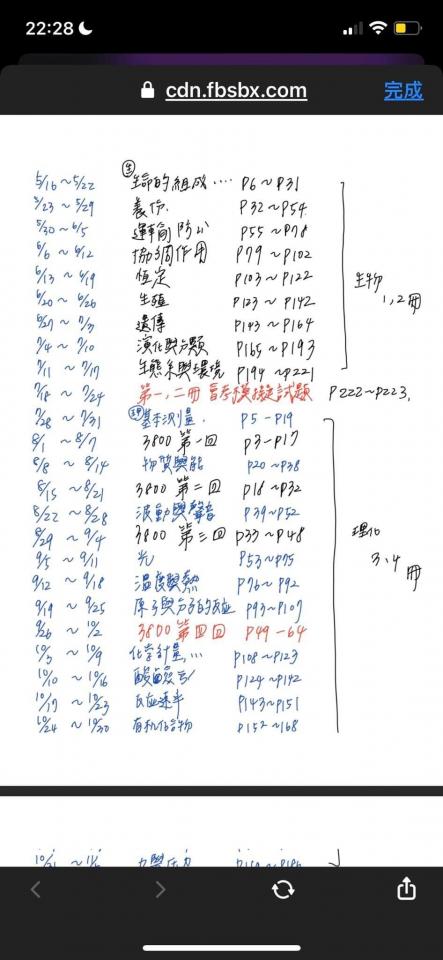 22:28
cdn.fbsbx.com 完成
生
5/16 ~ 5/22 生命的組成…. P6 ~ P31
5/23 ~ 5/29 養份. P32 ~ P54
5/30 ~ 6/5 運輸 防公 P55 ~ P78
6/6 ~ 6/12 協調作用 P79 ~ P102
6/13 ~ 6/19 恆定 P103 ~ P122
生物 1,2冊
6/20 ~ 6/26 生殖 P123 ~ P142
6/27 ~ 7/3 遺傳 P143 ~ P164
7/4 ~ 7/10 演化與分類 P165 ~ P193
7/11 ~ 7/17 生態系與環境 P194 ~ P221
7/18 ~ 7/24 第一,二冊 會考模擬試題 P222~P223,
7/28 ~ 7/31 理 基本測量. P5 ~ P19
8/1 ~ 8/7 3800 第一回 P3~P17
8/8 ~ 8/14 物質與能 P20 ~ P38
8/15 ~ 8/21 3800 第二回 P18 ~ P32
8/22 ~ 8/28 波動與聲音 P39~P52
8/29 ~ 9/4 3800 第三回 P33 ~ P48
理化 3、4 冊
9/5 ~ 9/11 光 P53~P75
9/12 ~ 9/18 溫度與熱 P76 ~ P92
9/19 ~ 9/25 原子與分子的反应 P93~P107
9/26 ~ 10/2 3800 第四回 P49 - 64
10/3 ~ 10/9 化学計量,… P108~P123
10/10 ~ 10/16 酸鹼 P124~P142
10/17 ~ 10/23 反应速率 P143~P151
10/24 ~ 10/30 有机化合物 P152 ~ 168